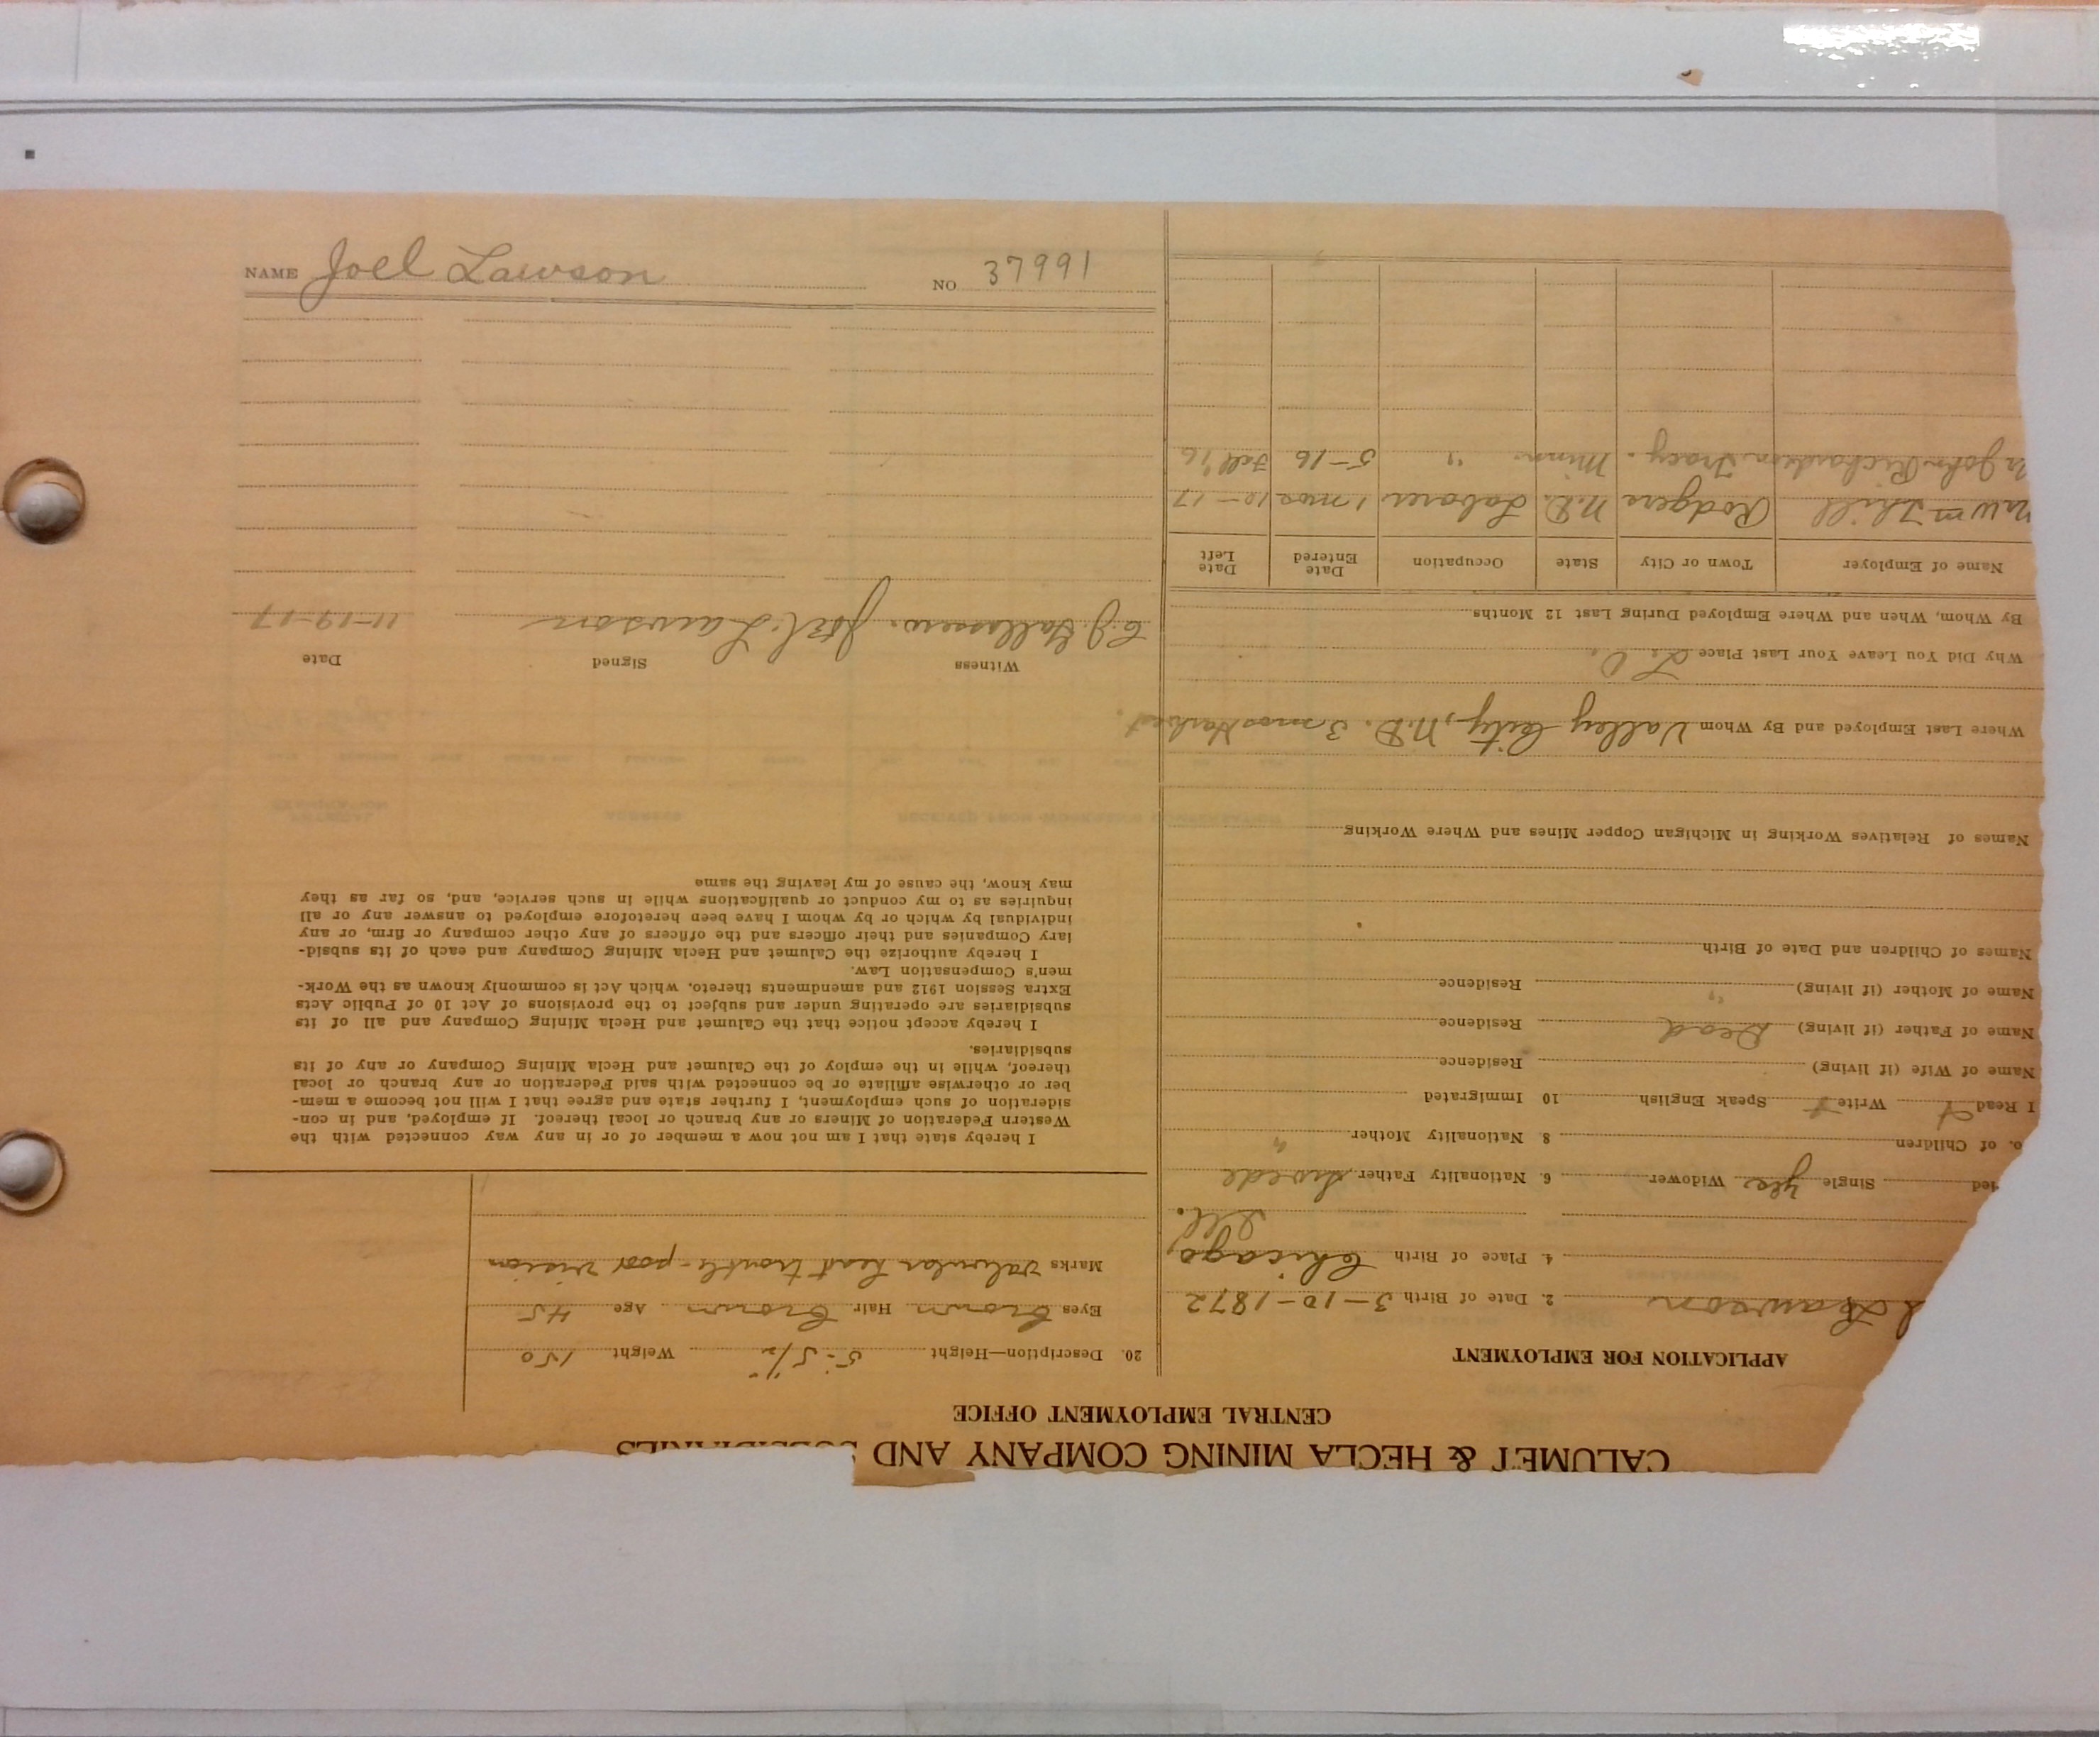 NAME Joel Lawson NO 37991
CALUMET & HECLA MINING COMPANY AND SUBSIDIARIES
CENTRAL EMPLOYMENT OFFICE
APPLICATION FOR EMPLOYMENT
Lawson 2. Date of Birth 3-10-1872
4. Place of Birth Chicago,
Ill.
Single yes Widower 6. Nationality Father Swede
o. of Children 8. Nationality Mother "
I Read Write Speak English 10 Immigrated
Name of Wife (if living) Residence
Name of Father (if living) Dead Residence
Name of Mother (if living) " Residence
Names of Children and Date of Birth
Names of Relatives Working in Michigan Copper Mines and Where Working
Where Last Employed and By Whom Valley City, N.D. 3 mos Harvest.
Why Did You Leave Your Last Place
By Whom, When and Where Employed During Last 12 Months
Name of Employer Town or City State Occupation Date Entered Date Left
Wm Thill Rodgers N.D. Laborer 1 mos 10-17
John Richardson Tracy. Minn. " 5-16 Fall 16
20. Description—Height 5-5½ Weight 150
Eyes brown Hair brown Age 45
Marks Valvular heart trouble - poor vision
I hereby state that I am not now a member of or in any way connected with the
Western Federation of Miners or any branch or local thereof. If employed, and in con-
sideration of such employment, I further state and agree that I will not become a mem-
ber or otherwise affiliate or be connected with said Federation or any branch or local
thereof, while in the employ of the Calumet and Hecla Mining Company or any of its
subsidiaries.
I hereby accept notice that the Calumet and Hecla Mining Company and all of its
subsidiaries are operating under and subject to the provisions of Act 10 of Public Acts
Extra Session 1912 and amendments thereto, which Act is commonly known as the Work-
men's Compensation Law.
I hereby authorize the Calumet and Hecla Mining Company and each of its subsid-
iary Companies and their officers and the officers of any other company or firm, or any
individual by which or by whom I have been heretofore employed to answer any or all
inquiries as to my conduct or qualifications while in such service, and, so far as they
may know, the cause of my leaving the same
Witness Signed Date
C.J. Joel. Lawson 11-19-17